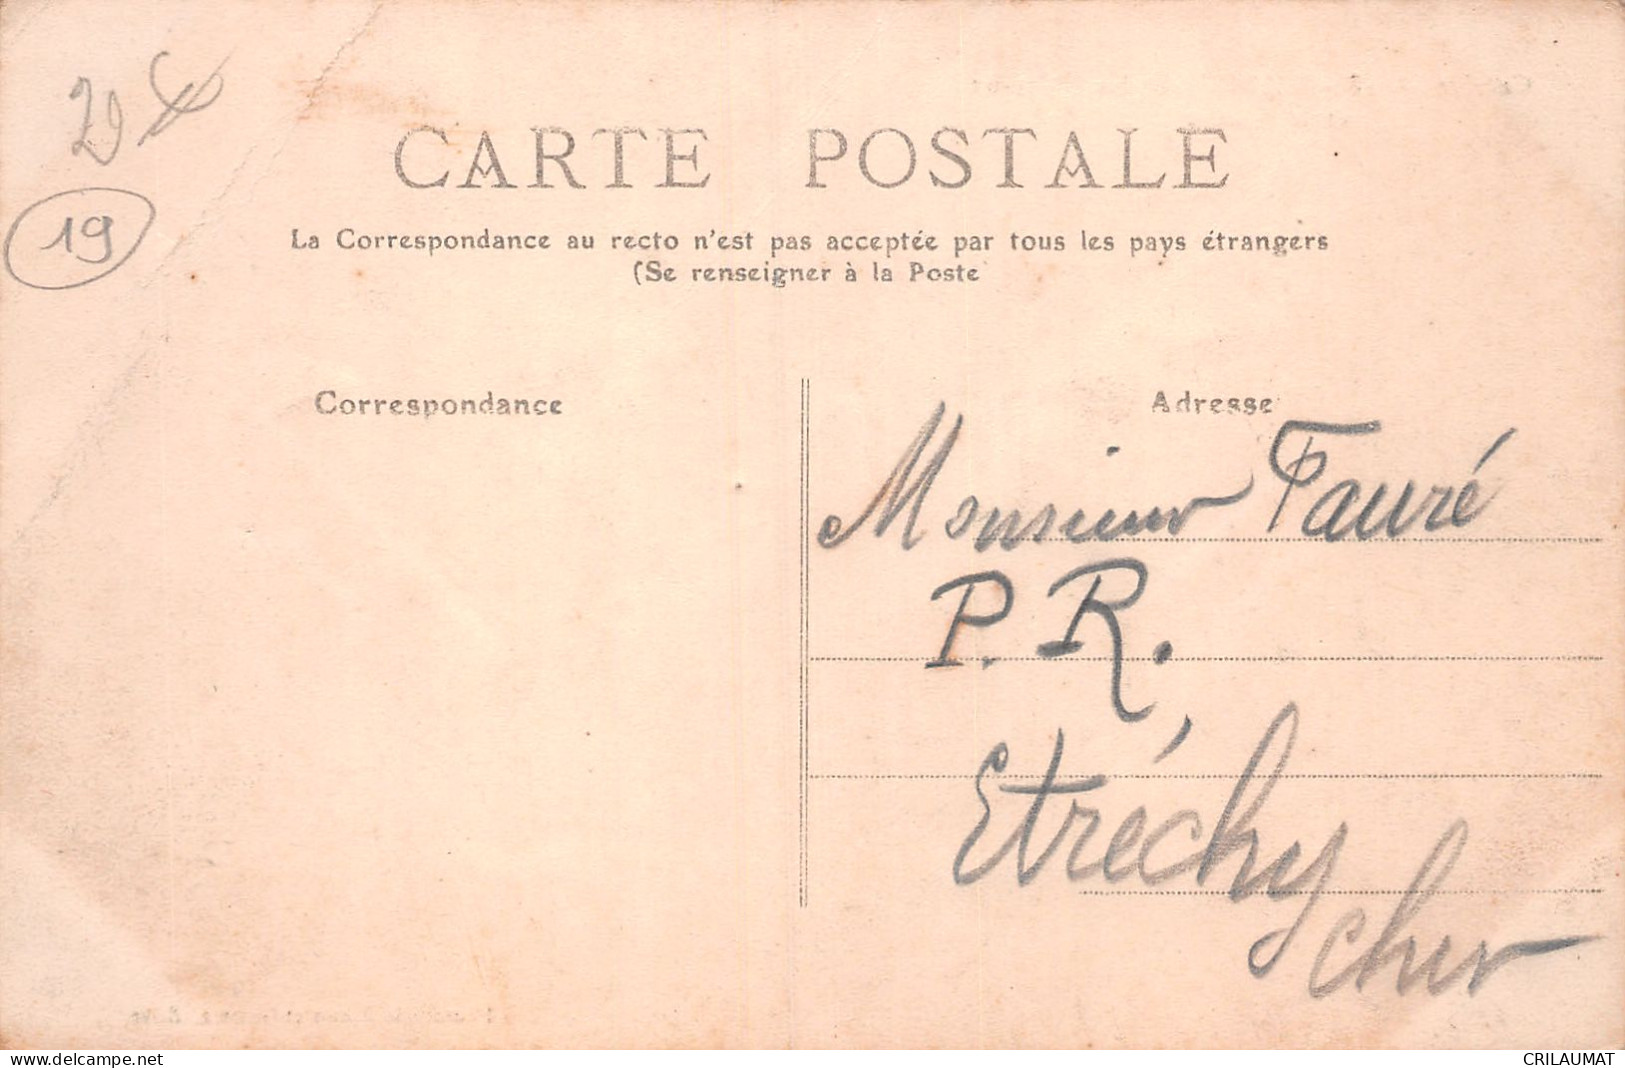 CARTE POSTALE
19
La Correspondance au recto n'est pas acceptée par tous les pays étrangers
(Se renseigner à la Poste
Correspondance
Adresse
Monsieur Fauré
P. R.
Etréchy
Cher
delcampe.net
CRILAUMAT